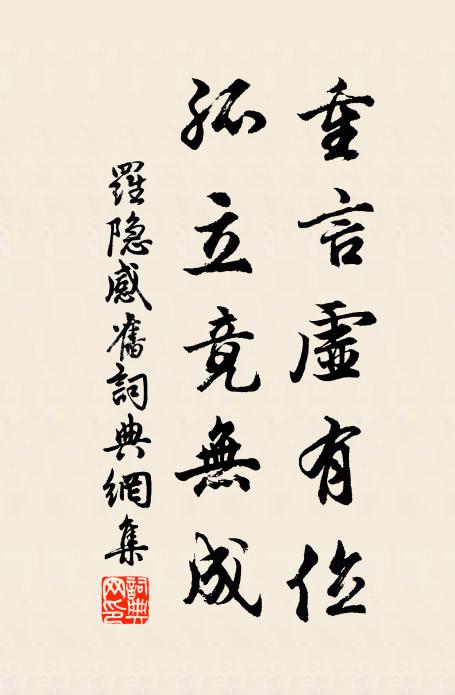 重言虛有位
孤立竟無成
羅隐感舊詞典網集
詞典
网印